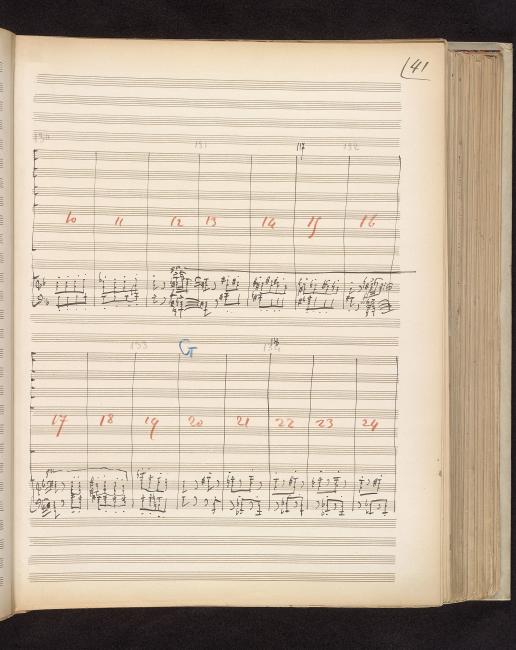 41
130
131 117 132
10 11 12 13 14 15 16
133 G
17 18 19 20 21 22 23 24